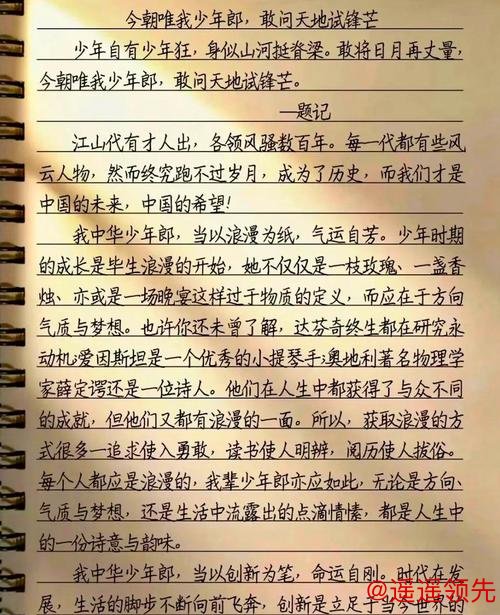 今朝唯我少年郎，敢问天地试锋芒
少年自有少年狂，身似山河挺脊梁。敢将日月再丈量，
今朝唯我少年郎，敢问天地试锋芒。
—题记
江山代有才人出，各领风骚数百年。每一代都有些风
云人物，然而终究跑不过岁月，成为了历史，而我们才是
中国的未来，中国的希望！
我中华少年郎，当以浪漫为纸，气运自芳。少年时期
的成长是毕生浪漫的开始，她不仅仅是一枝玫瑰、一盏香
烛、亦或是一场晚宴这样过于物质的定义，而应在于方向
气质与梦想。也许你还未曾了解，达芬奇终生都在研究永
动机爱因斯坦是一个优秀的小提琴手澳地利著名物理学
家薛定谔还是一位诗人。他们在人生中都获得了与众不同
的成就，但他们又都有浪漫的一面。所以，获取浪漫的方
式很多一追求使入勇敢，读书使人明辨，阅历使人拔俗。
每个人都应是浪漫的，我辈少年郎亦应如此，无论是方向、
气质与梦想，还是生活中流露出的点滴情愫，都是人生中
的一份诗意与韵味。
我中华少年郎，当以创新为笔，命运自刚。时代在发
展，生活的脚步不断向前飞奔，创新是立足于当今世界的
@遥遥领先